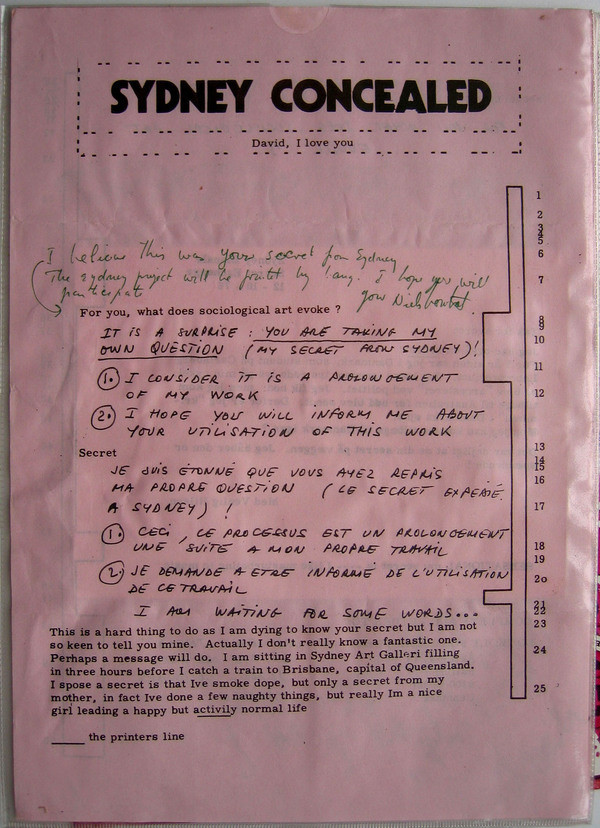 SYDNEY CONCEALED
David, I love you
I believe this was your secret from Sydney
The sydney project will be printed by Lang. I hope you will
participate
your
For you, what does sociological art evoke ?
IT IS A SURPRISE : YOU ARE TAKING MY
OWN QUESTION (MY SECRET FROM SYDNEY)!
1. I CONSIDER IT IS A PROLONGEMENT
OF MY WORK
2. I HOPE YOU WILL INFORM ME ABOUT
YOUR UTILISATION OF THIS WORK
Secret
JE SUIS ETONNÉ QUE VOUS AYEZ REPRIS
MA PROPRE QUESTION (LE SECRET EXPEDIÉ
A SYDNEY) !
1. CECI, CE PROCESSUS EST UN PROLONGEMENT
UNE SUITE A MON PROPRE TRAVAIL
2. JE DEMANDE A ETRE INFORMÉ DE L'UTILISATION
DE CE TRAVAIL
I AM WAITING FOR SOME WORDS...
This is a hard thing to do as I am dying to know your secret but I am not
so keen to tell you mine. Actually I don't really know a fantastic one.
Perhaps a message will do. I am sitting in Sydney Art Galleri filling
in three hours before I catch a train to Brisbane, capital of Queensland.
I spose a secret is that Ive smoke dope, but only a secret from my
mother, in fact Ive done a few naughty things, but really Im a nice
girl leading a happy but activily normal life
the printers line
1
2
3
4
5
6
7
8
9
10
11
12
13
14
15
16
17
18
19
20
21
22
23
24
25